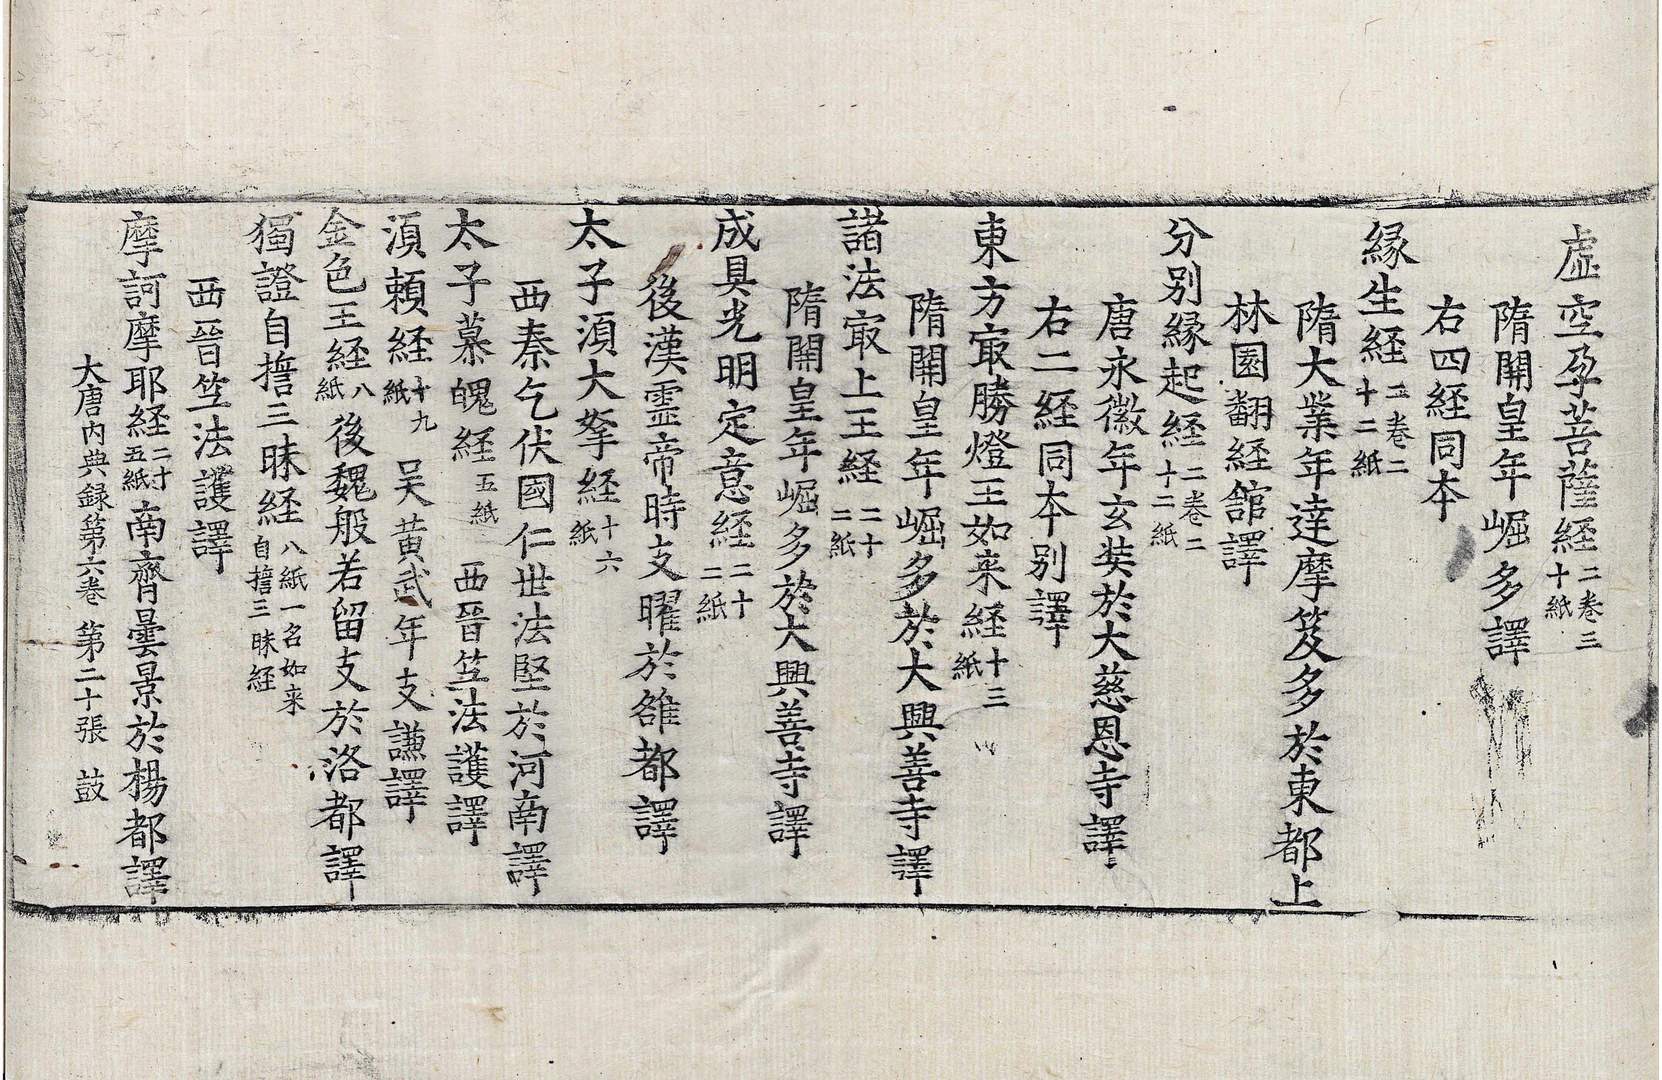 虛空孕菩薩経二卷三十紙
隋開皇年崛多譯
右四経同本
縁生経二卷二十二紙
隋大業年達摩笈多於東都上
林園翻経館譯
分別縁起経二卷二十二紙
唐永徽年玄奘於大慈恩寺譯
右二経同本别譯
東方㝡勝燈王如来経十三紙
隋開皇年崛多於大興善寺譯
諸法㝡上王経二十二紙
隋開皇年崛多於大興善寺譯
成具光明定意経二十二紙
後漢靈帝時支曜於雒都譯
太子湏大拏経十六紙
西秦乞伏國仁世法堅於河南譯
太子慕魄経五紙 西晉竺法護譯
湏頼経十九紙 吴黃武年支謙譯
金色王経八紙 後魏般若留支於洛都譯
獨證自擔三昧経八紙一名如来自擔三昧経
西晉竺法護譯
摩訶摩耶経二十五紙 南齊曇景於楊都譯
大唐内典録第六卷 第二十張 鼓